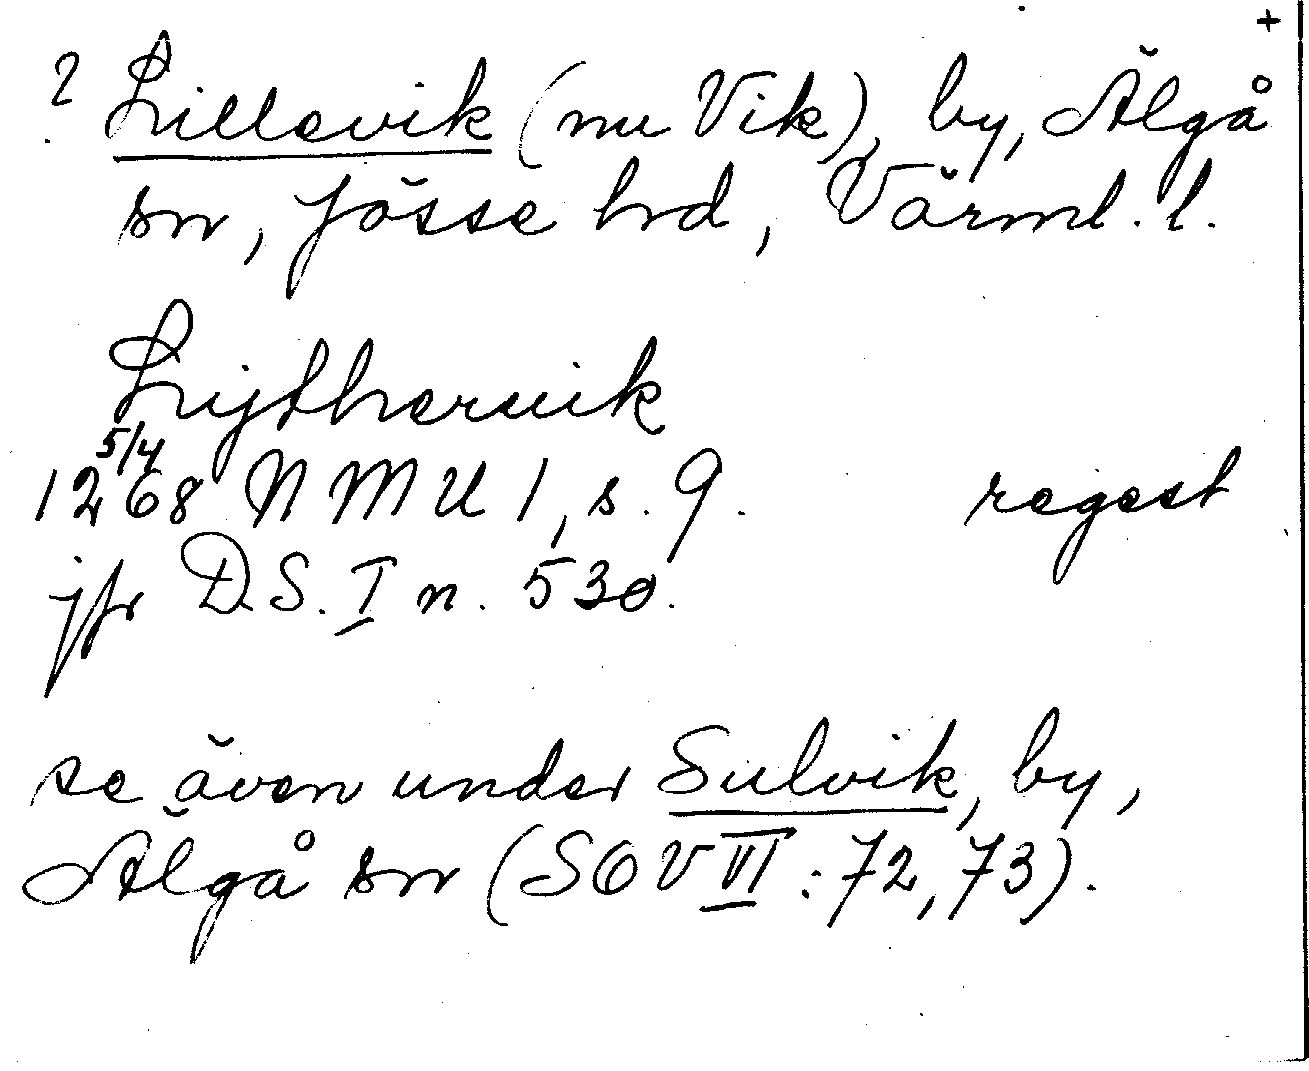 +
? Lillevik (nu Vik), by, Älgå
sn, Jösse hrd, Värml. l.
Lijthervik
5/4
1268 NMU 1, s. 9. regest
jfr DS. I n. 530.
se även under Sulvik, by,
Älgå sn (SOV VII : 72, 73).